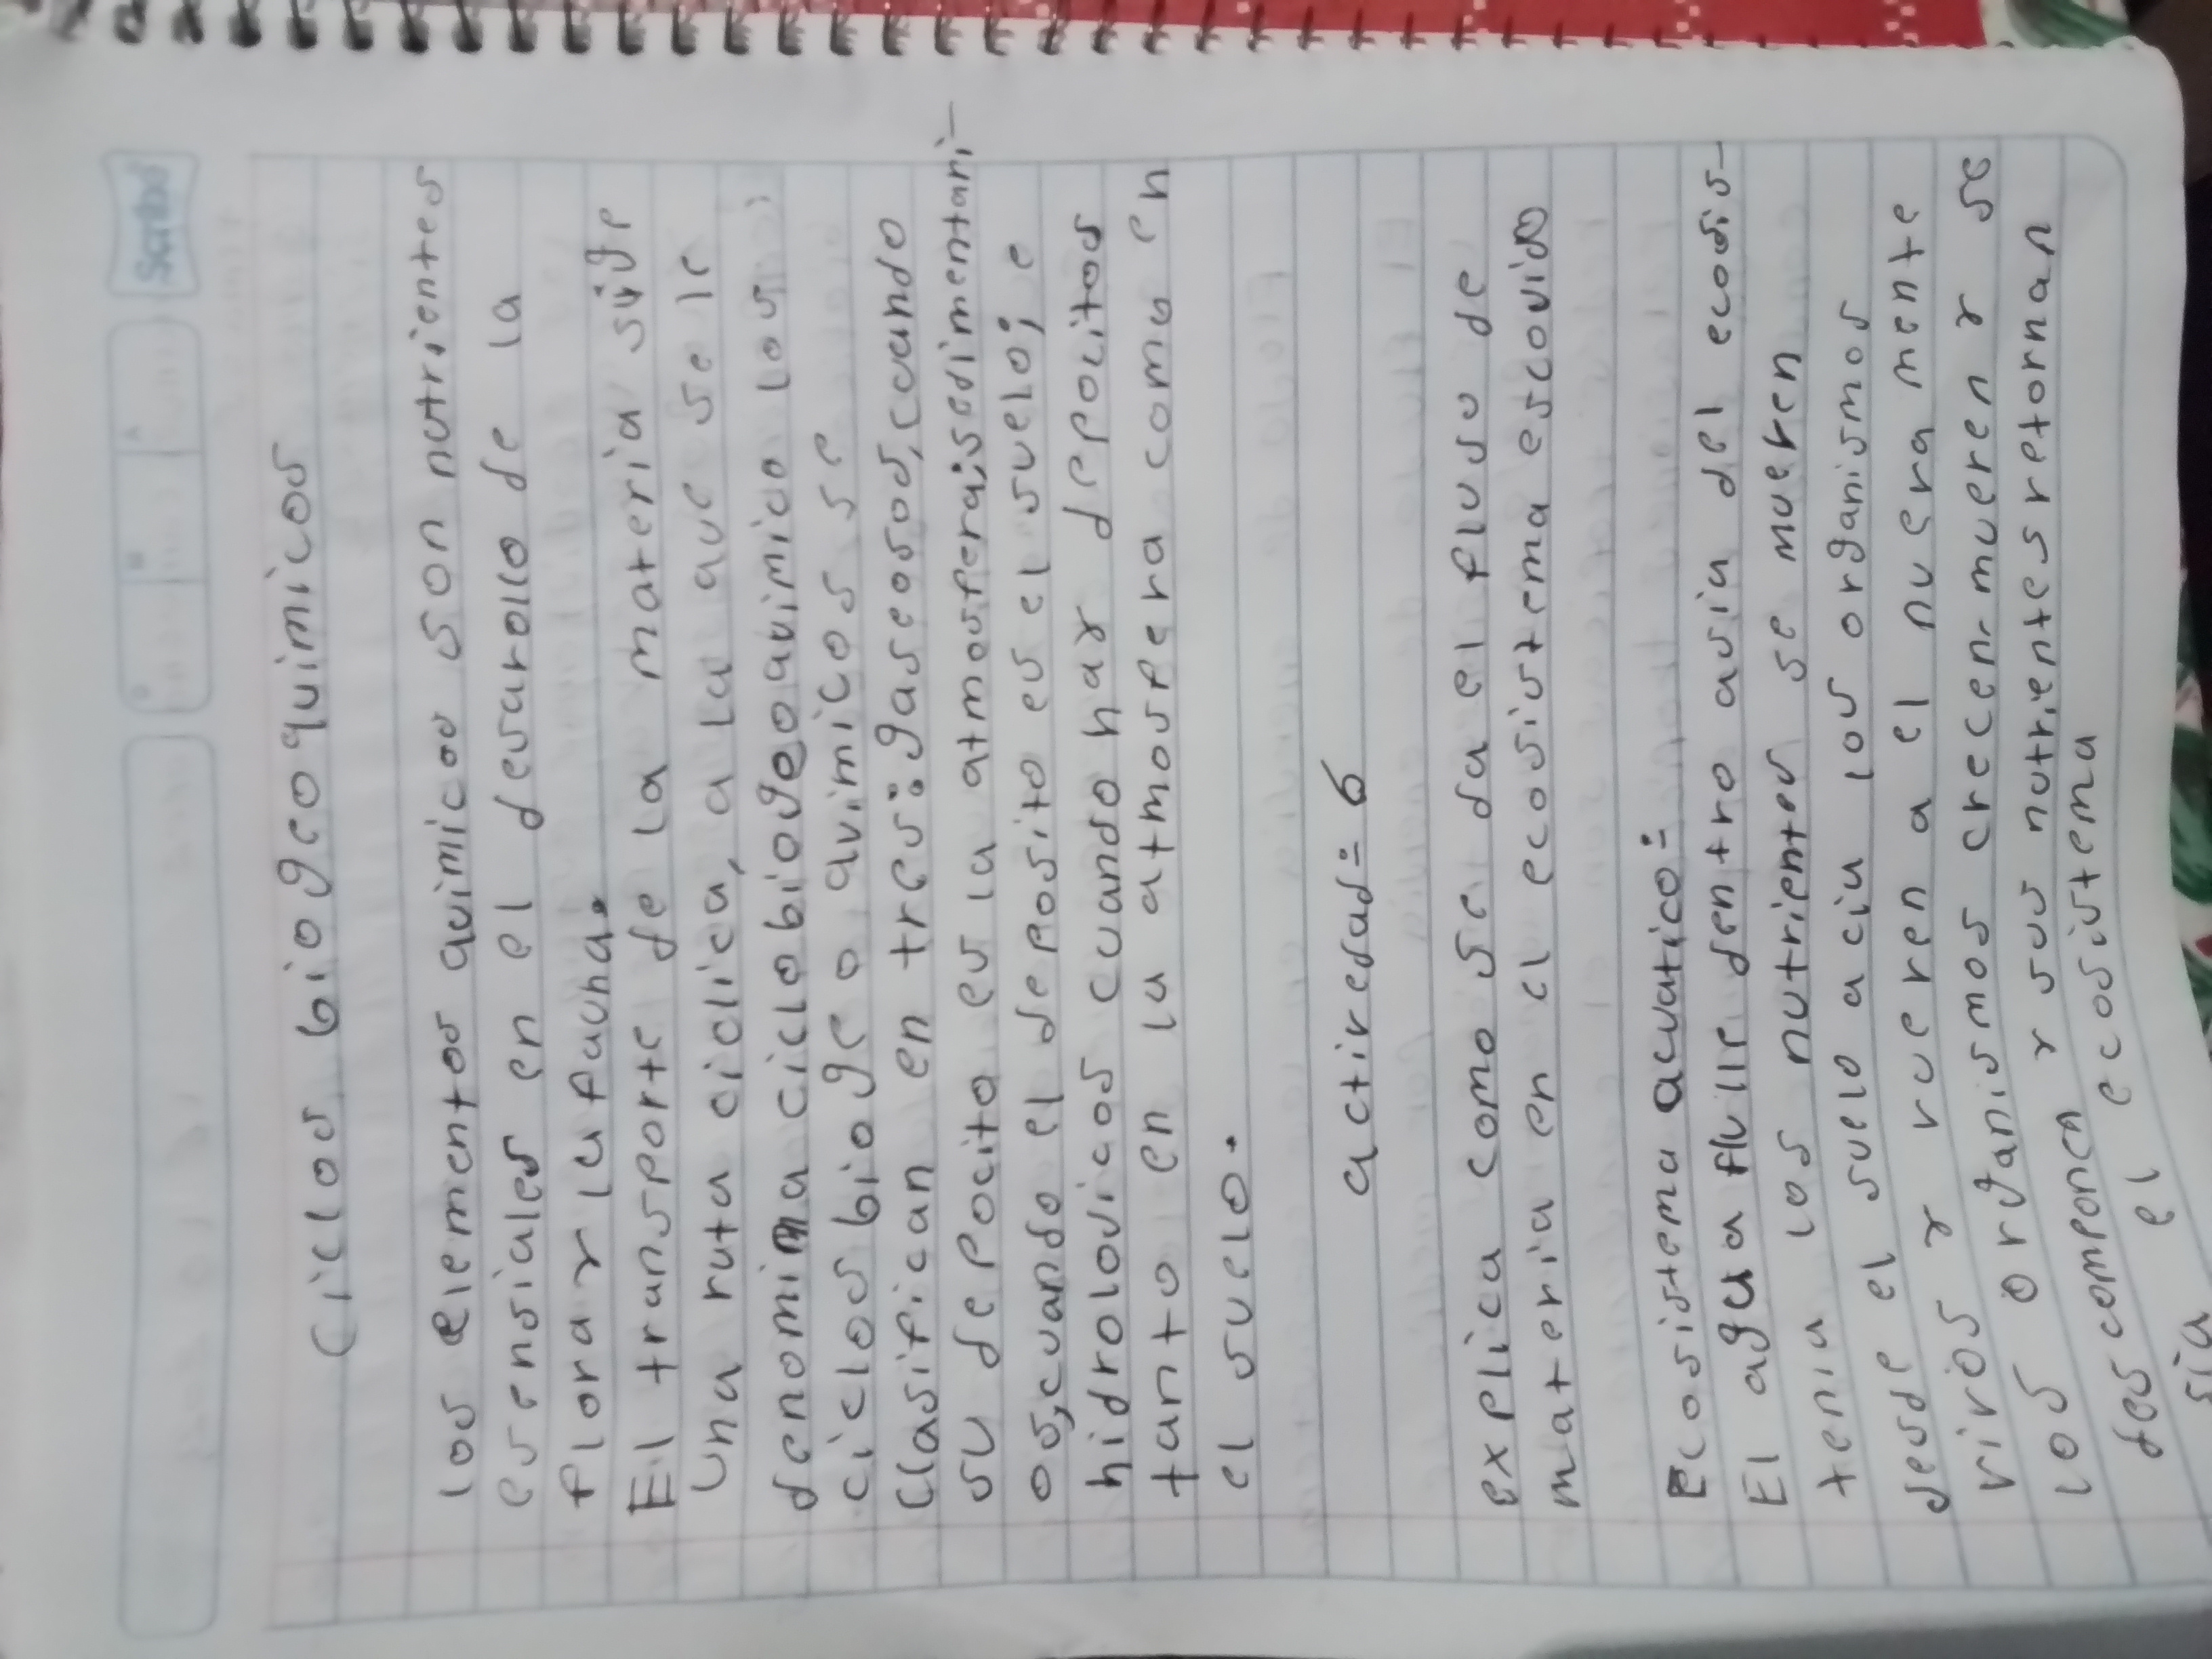 Scribe
Ciclos biogeoquimicos
los elementos quimicos son nutrientes
esensiales en el desarollo de la
flora y la fauna.
El transporte de la materia sige
una ruta ciclica, a la que se le
denomina ciclo biogeoquimico los
ciclos biogeo quimicos se
Clasifican en tres: gaseosos, cuando
su depocito es la atmosfera; sedimentari-
os, cuando el deposito es el suelo; e
hidrologicos cuando hay depocitos
tanto en la atmosfera como en
el suelo.
activedad= 6
explica como se da el fluso de
materia en el ecosistema escovido
Ecosistema acuatico=
El agua flulle dentro asia del ecosis-
tenia los nutrientes se mueven
desde el suelo a cia los organismos
vivos y vueren a el nuera mente
los organismos crecen mueren y se
descomponen y sus nutrientes retornan
el ecosistema